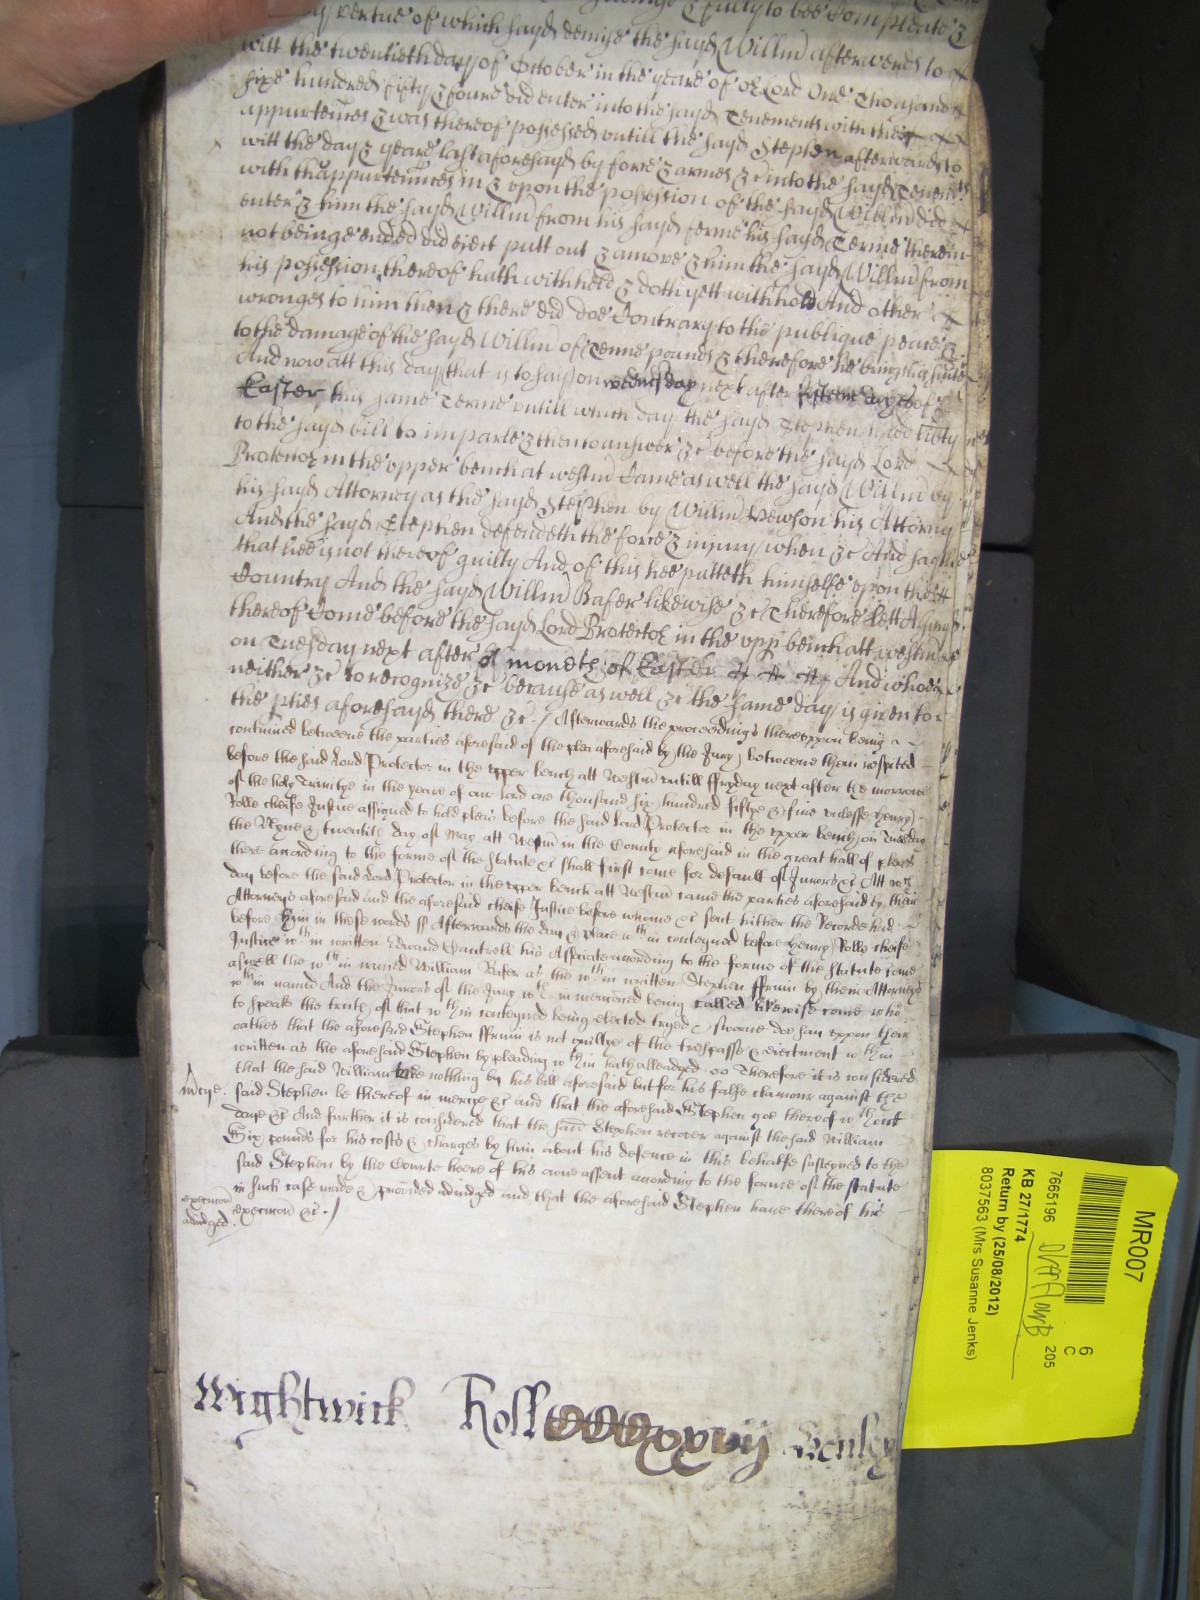 fully to bee Compleate &
by vertue of which sayd demise the sayd Willm afterwards to
witt the twentieth day of October in the yeare of or Lord One Thousand
sixe hundred fifty & foure did enter into the sayd Tenements with their
appurtennces & was thereof possessed untill the sayd Stephen afterwards to
witt the day & yeare last aforesayd by force & armes &c into the sayd Tenemts
with thappurtennces in & upon the possession of the sayd Willm did
enter & him the sayd Willm from his sayd ferme his sayd Terme therein
not beinge ended did eiect putt out & amove & him the sayd Willm from
his possession thereof hath withheld & doth yett withhold And other
wronges to him then & there did doe Contrary to the publique peace &
to the damage of the sayd Willm of Tenne pounds & therefore he bringeth suite
And now att this day (that is to say) on wednesday next after fifteene dayes of
Easter this same Terme untill which day the sayd Stephen had liberty
to the sayd bill to imparle & then to answer &c before the sayd Lord
Protector in the upper bench at westm Came as well the sayd Willm by
his sayd Attorney as the sayd Stephen by Willm Hewson his Attorny
And the sayd Stephen defendeth the force & iniury when &c And sayth
that hee is not thereof guilty And of this hee putteth himselfe upon the
Country And the sayd Willm Baker likewise &c Therefore lett A Jury
thereof Come before the sayd Lord Protector in the upp bench att westm
on Tuesday next after a moneth of Easter And who
neither &c to recognize &c because as well &c the same day is given to
the pties aforesayd there &c / Afterwards the proceedings thereuppon being
continued betweene the parties aforesaid of the plea aforesaid by the Jury betweene them respited
before the said Lord Protector in the upper bench att Westm untill ffryday next after the morrowe
of the holy Trinitye in the yeare of our Lord one thousand six hundred fiftye & five unlesse Henry
Rolle cheife Justice assigned to hold pleas before the said Lord Protector in the upper bench on Tuesday
the Nyne & twentith day of May att Westm in the County aforesaid in the great hall of pleas
there according to the forme of the Statute &c shall first come for default of Jurors &c Att wch
day before the said Lord Protector in the upper bench att Westm came the parties aforesaid by their
Attorneys aforesaid and the aforesaid cheife Justice before whome &c sent hither the Recorde had
before hym in these words ss Afterwards the day & place wthin conteyned before Henry Rolle cheife
Justice wthin written Edward Cantrell his Assotiate according to the forme of the Statute came
aswell the wthin named William Baker as the wthin written Stephen ffrmin by their Attorneys
wthin named And the Jurors of the Jury wthin menconed being called likewise come who
to speake the truth of that wthin conteyned being elected tryed & sworne doe say uppon their
oathes that the aforesaid Stephen ffrmin is not guiltye of the trespasse & eiectment wthin
written as the aforesaid Stephen by pleading wthin hath alleadged Therefore it is considered
that the said William take nothing by his bill aforesaid but for his false clamour against the
mcye. said Stephen be thereof in mercye &c and that the aforesaid Stephen goe thereof wthout
daye &c And further it is considered that the said Stephen recover against the said William
Six pounds for his costs & charges by him about his defence in this behalfe susteyned to the
said Stephen by the Courte heere of his owne assent according to the forme of the statute
in such case made & provided adiudged and that the aforesaid Stephen have thereof his
execucon adiudged. execucon &c. /
Wightwick Roll CCCxxvij Henley
MR007
6
C
205
7665196
KB 27/1774
Return by (25/08/2012)
8037563 (Mrs Susanne Jenks)